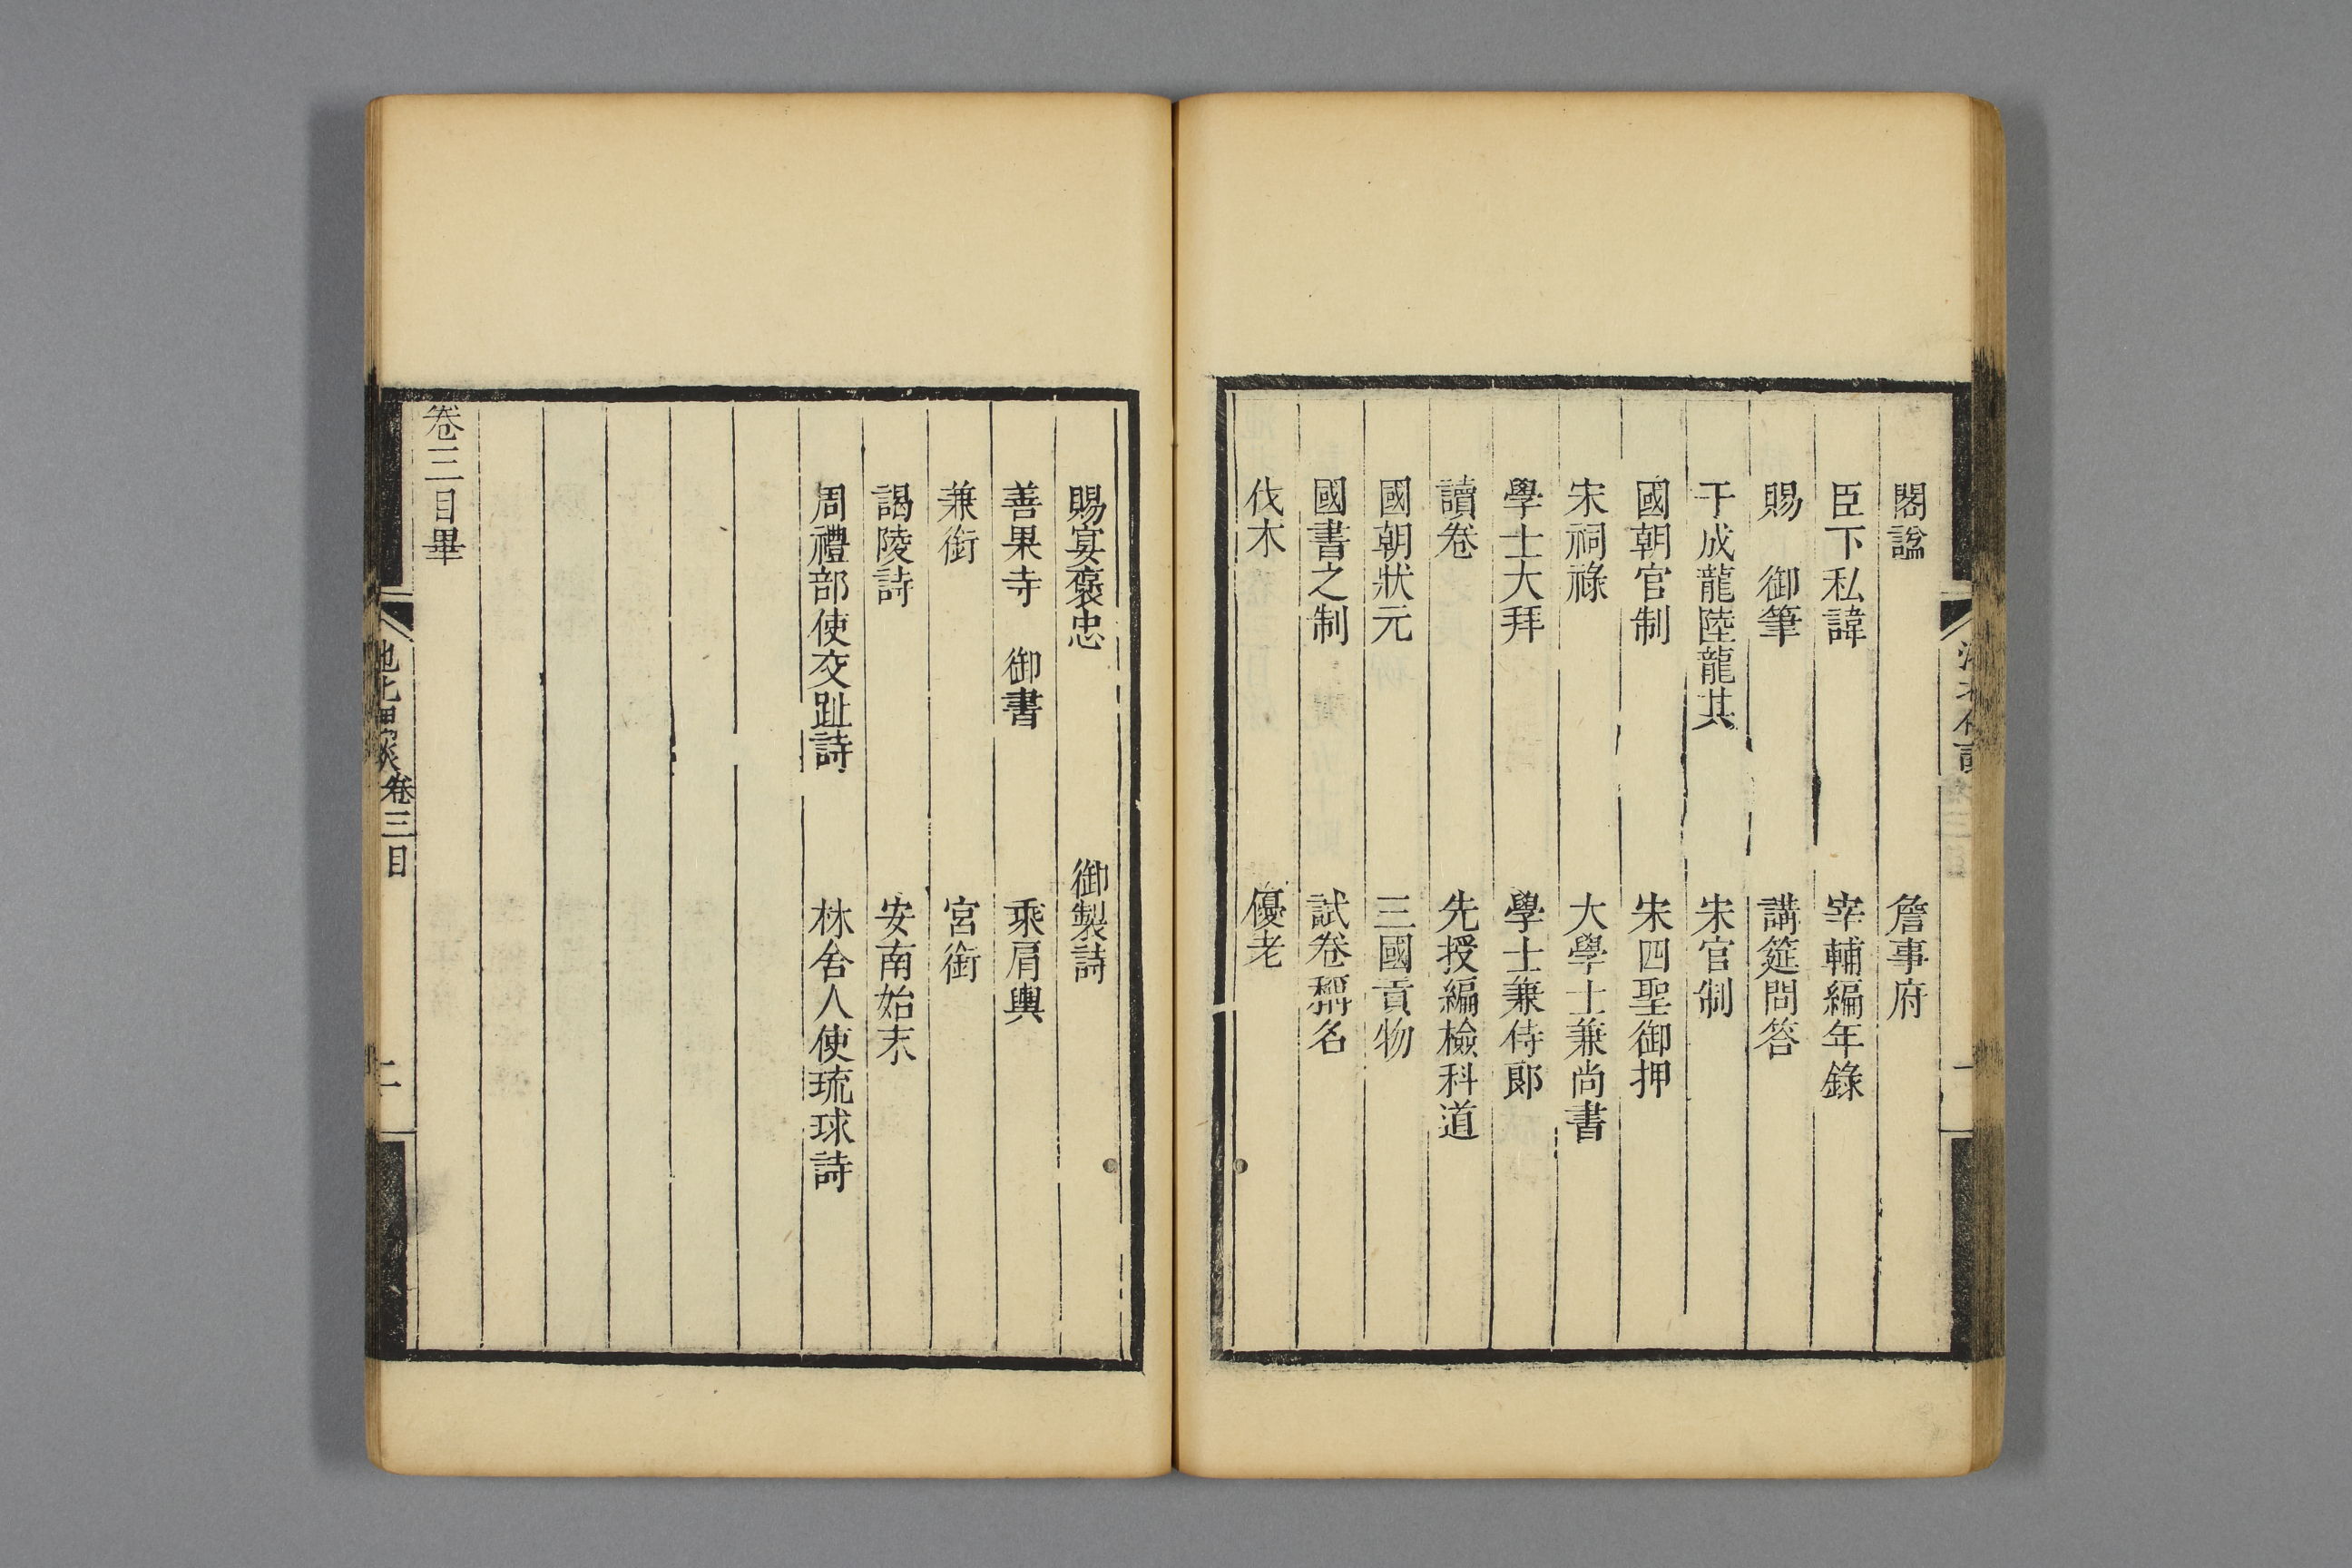 閣諡　詹事府
臣下私諱　宰輔編年錄
賜　御筆　講筵問答
于成龍陸龍其　宋官制
國朝官制　宋四聖御押
宋祠祿　大學士兼尚書
學士大拜　學士兼侍郎
讀卷　先授編檢科道
國朝狀元　三國貢物
國書之制　試卷稱名
伐木　優老
賜宴褒忠　御製詩
善果寺　御書　乘肩輿
兼銜　宮銜
謁陵詩　安南始末
周禮部使交趾詩　林舍人使琉球詩
卷三目畢
卷三目
二